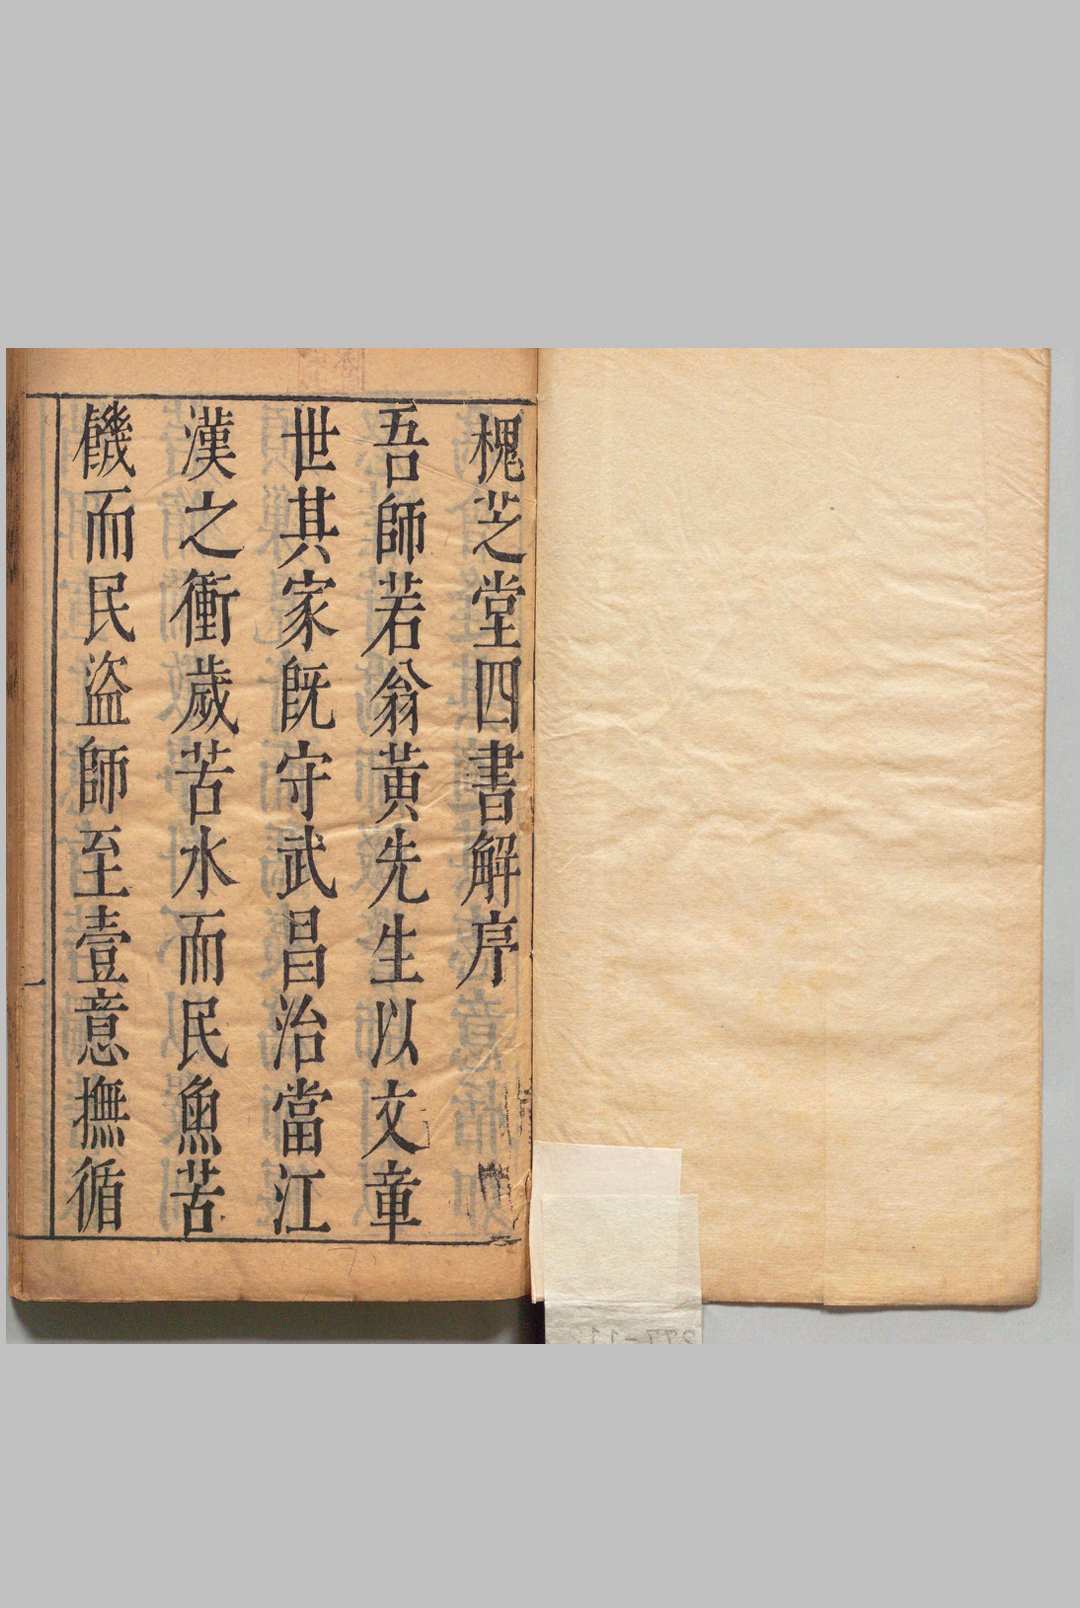 槐芝堂四書解序
吾師若翁黃先生以文章
世其家既守武昌治當江
漢之衝歲苦水而民魚苦
饑而民盜師至壹意撫循